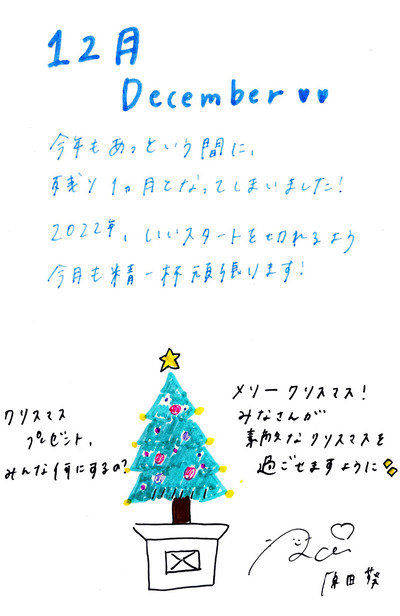 12月
December ♥♥
今年もあっという間に、
残り1ヵ月となってしまいました!
2022年、いいスタートを切れるよう
今月も精一杯頑張ります!
クリスマス
プレゼント、
みんな何にするの?
メリークリスマス!
みなさんが
素敵なクリスマスを
過ごせますように
原田葵